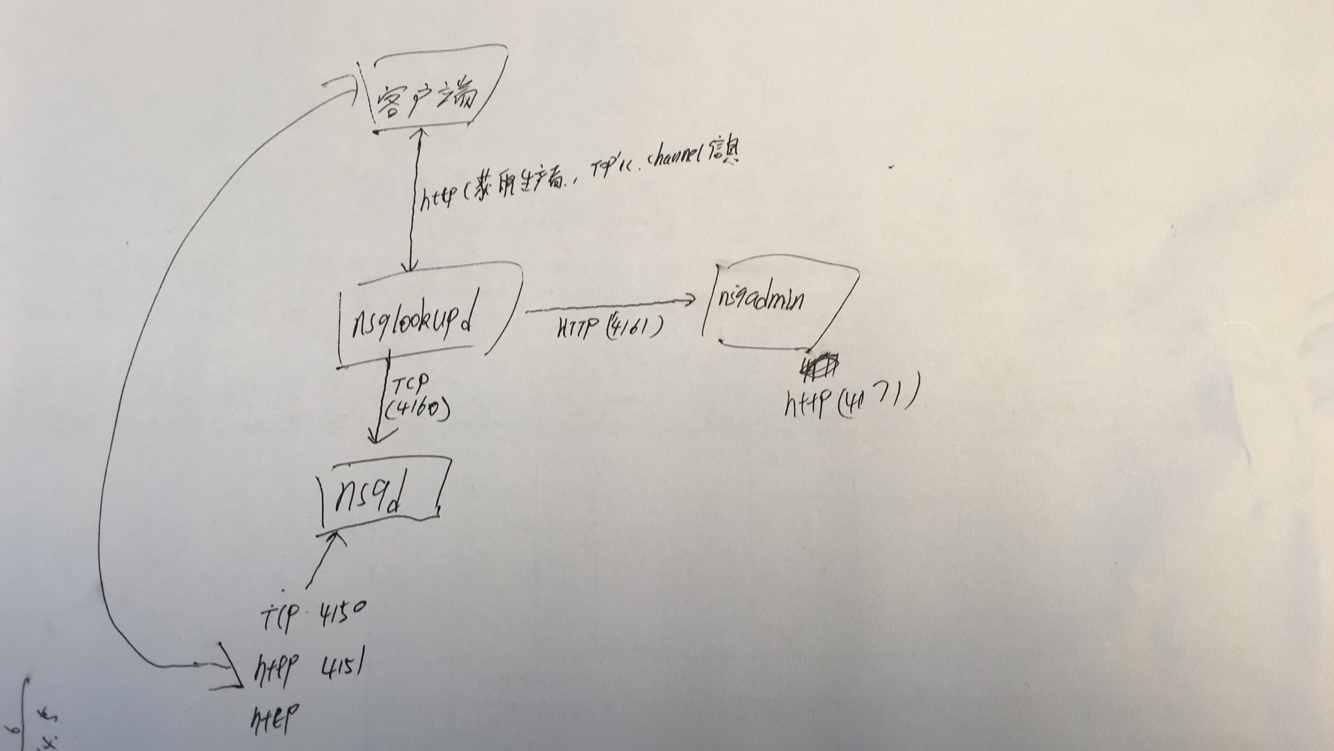 客户端
http(获取生产者., Topic. channel信息
nsqlookupd
HTTP (4161)
nsqadmin
TCP
(4160)
http (4171)
nsqd
TCP 4150
http 4151
http